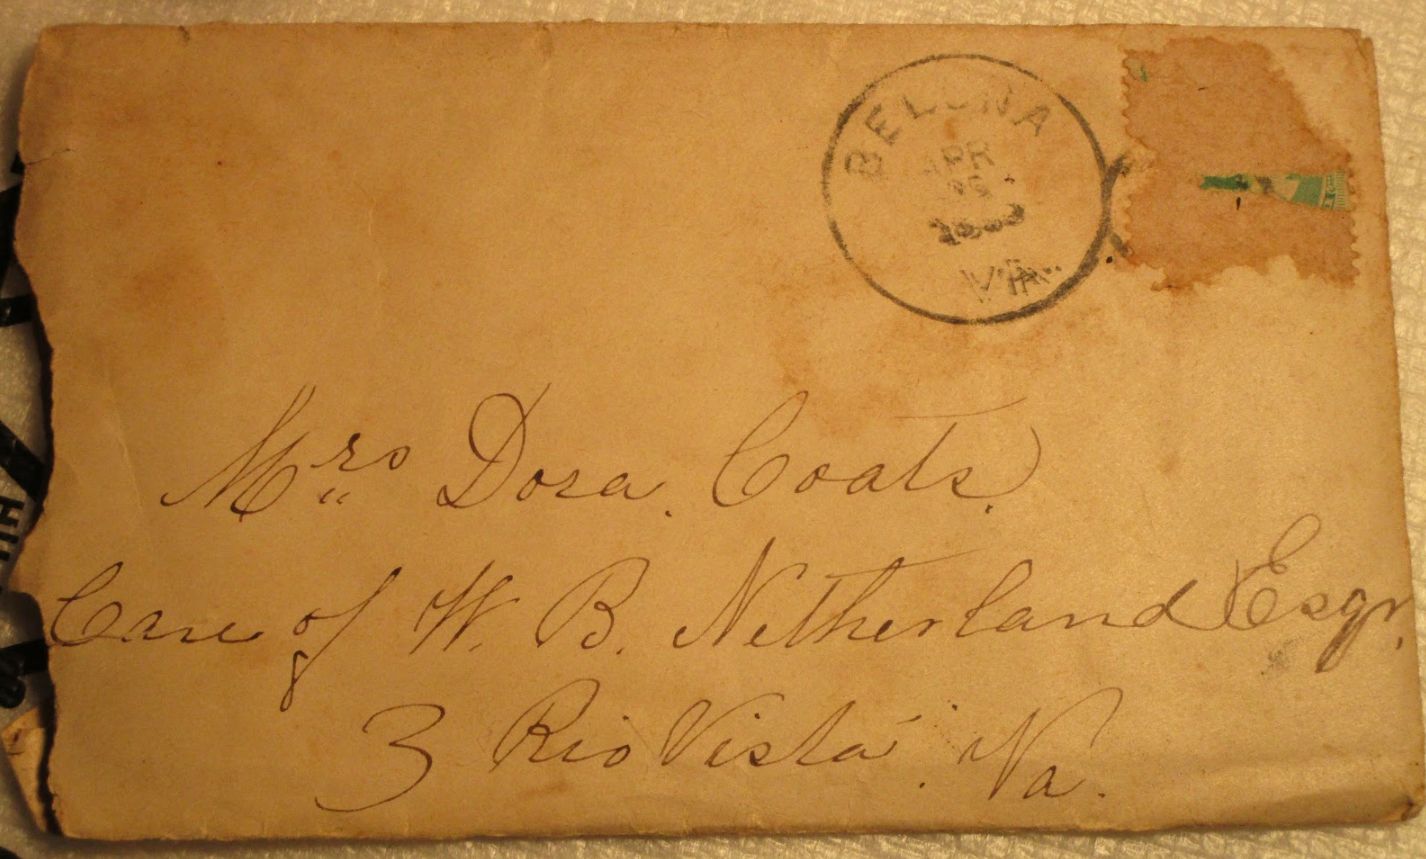 BELONA
APR
VA.
Mrs Dora. Coats.
Care of W. B. Netherland Esqr.
3 Rio Vista. Va.